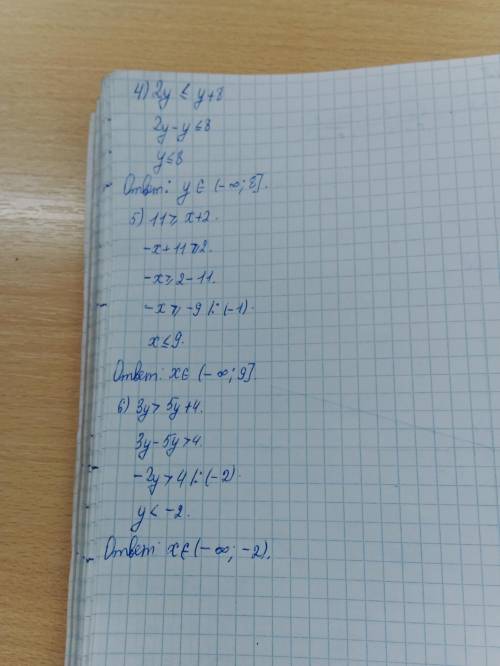 4) 2y ≤ y+8
2y-y ≤ 8
y ≤ 8
Ответ: y ∈ (-∞; 8].
5) 11 ≥ x+2.
-x+11 ≥ 2.
-x ≥ 2-11.
-x ≥ -9 |:(-1).
x ≤ 9.
Ответ: x ∈ (-∞; 9].
6) 3y > 5y+4.
3y-5y > 4.
-2y > 4 |:(-2)
y < -2.
Ответ: x ∈ (-∞; -2).